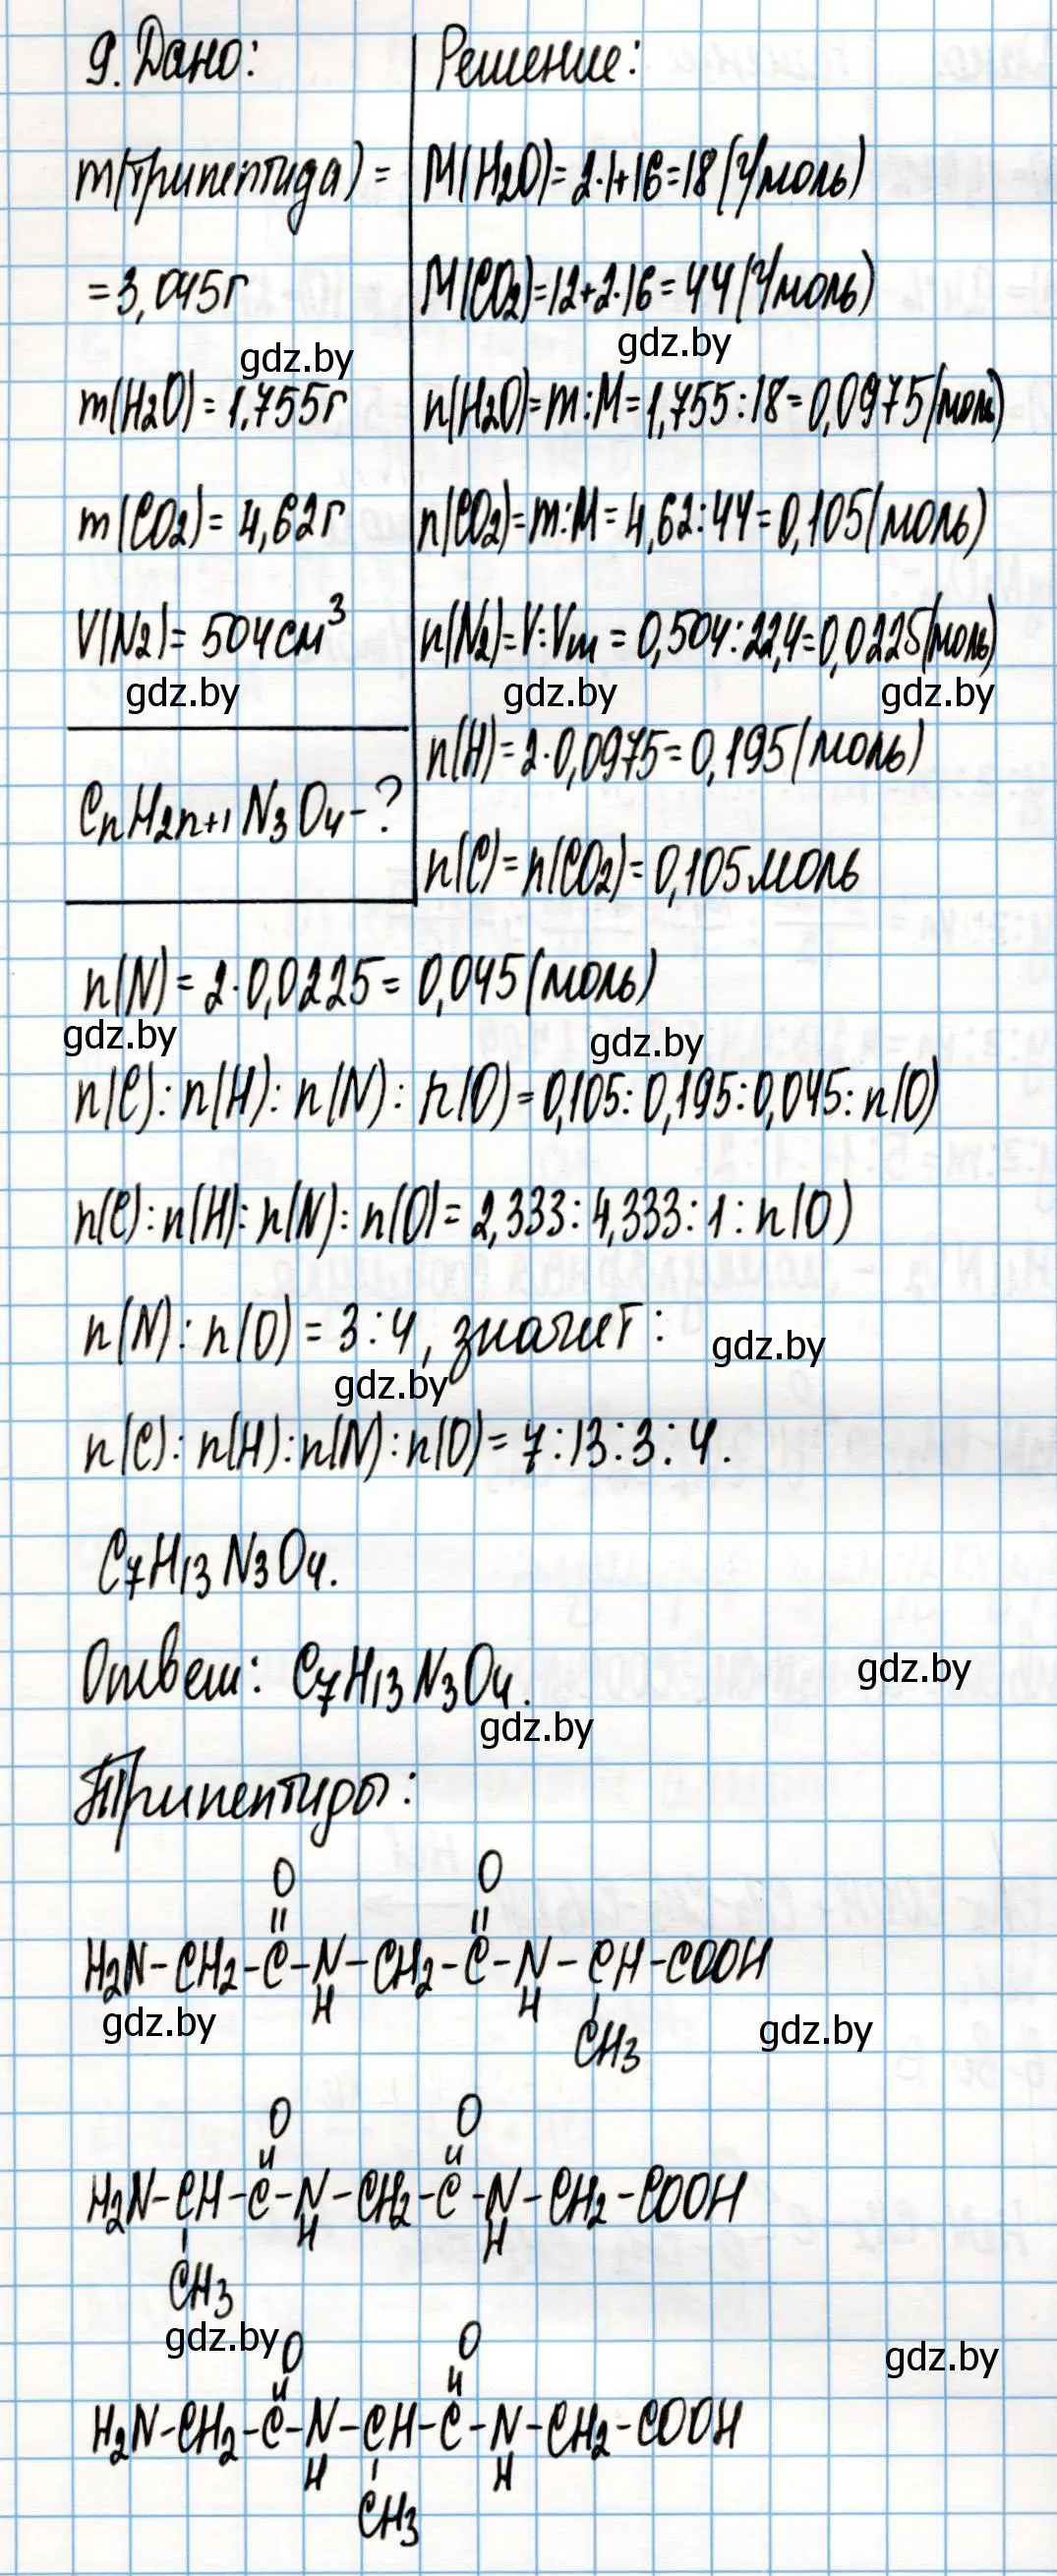 9. Дано:
Решение:
m(трипептида) =
= 3,045г
m(H2O) = 1.755г
m(CO2) = 4,62г
V(N2) = 504 см³
CnH2n+1N3O4 - ?
M(H2O) = 2·1+16=18 (г/моль)
M(CO2)=12+2·16=44 (г/моль)
gdz.by gdz.by
n(H2O)=m:M=1,755:18=0,0975(моль)
n(CO2)=m:M=4,62:44=0,105(моль)
n(N2)=V:Vm=0,504:22,4=0,0225(моль)
gdz.by gdz.by gdz.by
n(H)=2·0,0975=0,195(моль)
n(C)=n(CO2)=0,105моль
n(N)=2·0,0225=0,045(моль)
gdz.by gdz.by
n(C):n(H):n(N):n(O)=0,105:0,195:0,045:n(O)
n(C):n(H):n(N):n(O)=2,333:4,333:1:n(O)
n(N):n(O)=3:4, значит:
gdz.by gdz.by
n(C):n(H):n(N):n(O)=7:13:3:4.
C7H13N3O4.
Ответ: C7H13N3O4.
gdz.by gdz.by
Трипептиды:
O O
|| ||
H2N-CH2-C-N-CH2-C-N-CH-COOH
H H |
gdz.by CH3 gdz.by
O O
|| ||
H2N-CH-C-N-CH2-C-N-CH2-COOH
| H H
CH3
gdz.by gdz.by
O O
|| ||
H2N-CH2-C-N-CH-C-N-CH2-COOH
H | H
CH3